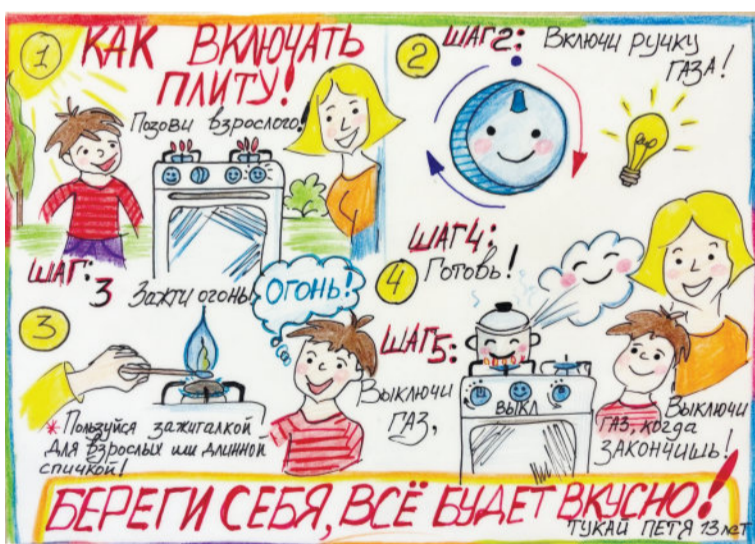 1
КАК ВКЛЮЧАТЬ
ПЛИТУ!
Позови взрослого!
2
ШАГ 2:
Включи ручку
ГАЗА!
ШАГ:
3
Зажги огонь!
ОГОНЬ!
3
* Пользуйся зажигалкой
для взрослых или длинной
спичкой!
ШАГ 4:
4
Готовь!
ШАГ 5:
Выключи
ГАЗ,
ВЫКЛ
Выключи
ГАЗ, когда
ЗАКОНЧИШЬ!
БЕРЕГИ СЕБЯ, ВСЁ БУДЕТ ВКУСНО!
ТУКАЙ ПЕТЯ 13 лет